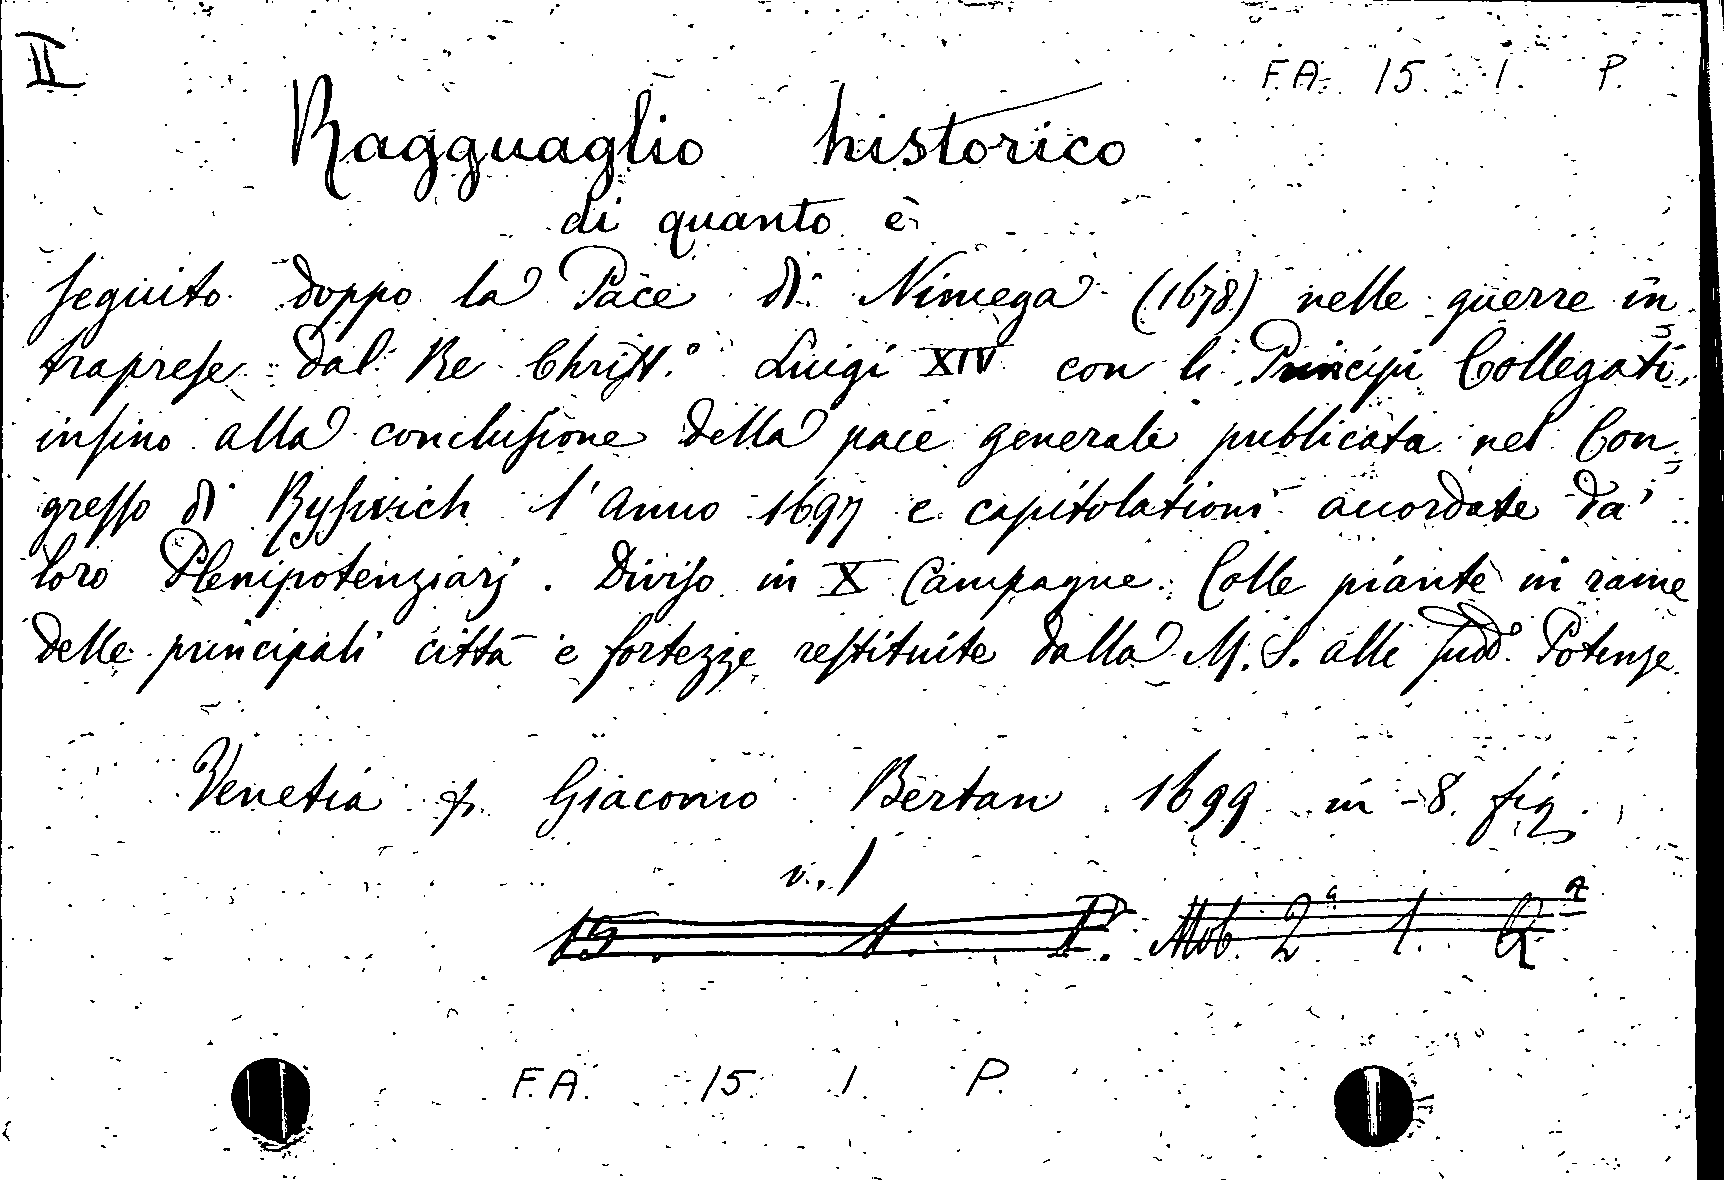 II
F.A. 15. 1. P.
Ragguaglio historico
di quanto è
seguito doppo la Pace di Nimega (1678) nelle guerre in
traprese dal Re Christ.º Luigi XIV con li Principi Collegati,
insino alla conclusione della pace generale publicata nel Con
gresso di Ryswich l'Anno 1697 e capitolationi accordate da'
loro Plenipotenziarj. Diviso in X Campagne. Colle piante in rame
delle principali città e fortezze restituite dalla M. S. alle sudd.e Potenze.
Venetia p. Giacomo Bertan 1699 in-8. fig.
v. 1
15. 1. P. Mob. 2ª 1. Q.
F.A. 15. 1. P.